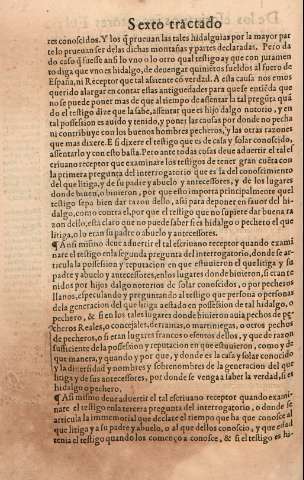 Sexto tractado
res conoscidos. Y los q̃ procuan las tales hidalguias por la mayor par
te lo prueuan ser delas dichas montañas y partes declaradas. Pero da
do caso q̃ fuesse ansi lo vno o lo otro qual testigo ay que con juramen
to diga que vno es hidalgo, de deuengar quinientos sueldos al fuero de
España, ni Receptor que tal assiente cõ verdad. A esta causa nos emos
querido alargar en contar estas antiguedades para que se entiẽda que
no se puede poner mas de que al tiempo de assentar la tal pregũta quã
do el testigo dize que la sabe, assentar que es hijo dalgo notorio, y en
tal possession es auido y tenido, y poner las causas por donde no pecha
ni contribuye con los buenos hombres pecheros, y las otras razones
que mas dixere. E si dixere el testigo que es de casa y solar conoscido,
assentarlo y con esto basta. Pero ante todas cosas deue aduertir el tal es
criuano receptor que examinare los testigos de tener gran cuẽta con
la primera pregunta del interrogatorio que es la del conoscimiento
del que litiga, y de su padre y abuelo y antecessores, y de los lugares
donde biuen, o biuieron, por que esto importa principalmente quel
testigo sepa bien dar razon dello, assi para deponer en fauor del hi-
dalgo, como contra el, por que el testigo que no supiere dar buena ra
zon dello, està claro que no puede saber si es hidalgo o pechero el que
litiga, o lo eran su padre o abuelo y antecessores.
¶ An si mismo deue aduertir el tal escriuano receptor quando exami
nare el testigo en la segunda pregunta del interrogatorio, donde se ar-
ticula la possession y reputacion en que estuuieron el que litiga y su
padre y abuelo y antecessores, en los lugares donde biuieron, si eran te
nidos por hijos dalgo notorios de solar conoscidos, o por pecheros
llanos, especulando y preguntando al testigo que persona o personas
dela generacion del que litiga a estado en possession de tal hidalgo, o
pechero, & si en los tales lugares donde biuieron auia pechos de pe-
cheros Reales, o concejales, derramas, o martiniegas, o otros pechos
de pecheros, o si eran lugares francos o esentos dellos, y que de razon
suficiente de la possession y reputacion en que estuuieron, como y de
que manera, y quando y por que, y donde es la casa y solar conoscido
y la diuersidad y nombres y sobrenombres de la generacion del que
litiga y de sus antecessores, por donde se venga a saber la verdad, si es
hidalgo o pechero.
¶ An si mismo deue aduertir el tal escriuano receptor quando exami-
nare el testigo en la tercera pregunta del interrogatorio, donde se
articula la immemorial que declare el tiempo que ha que conosce al
que litiga y a su padre y abuelo, o al que dellos conoscio, y que edad
tenia el testigo quando los començo a conosce, & si el testigo es hi-